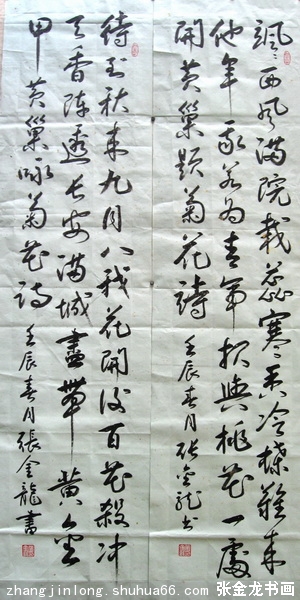 颯〻西風滿院栽蕊寒香冷蝶難来
他年我若為青帝报與桃花一處
開黄巢题菊花詩 壬辰春月张金龙书
待到秋来九月八我花開後百花殺冲
天香陣透長安滿城盡帶黄金
甲黄巢咏菊花詩 壬辰春月張金龍書
zhangjinlong.shuhua66.com 张金龙书画